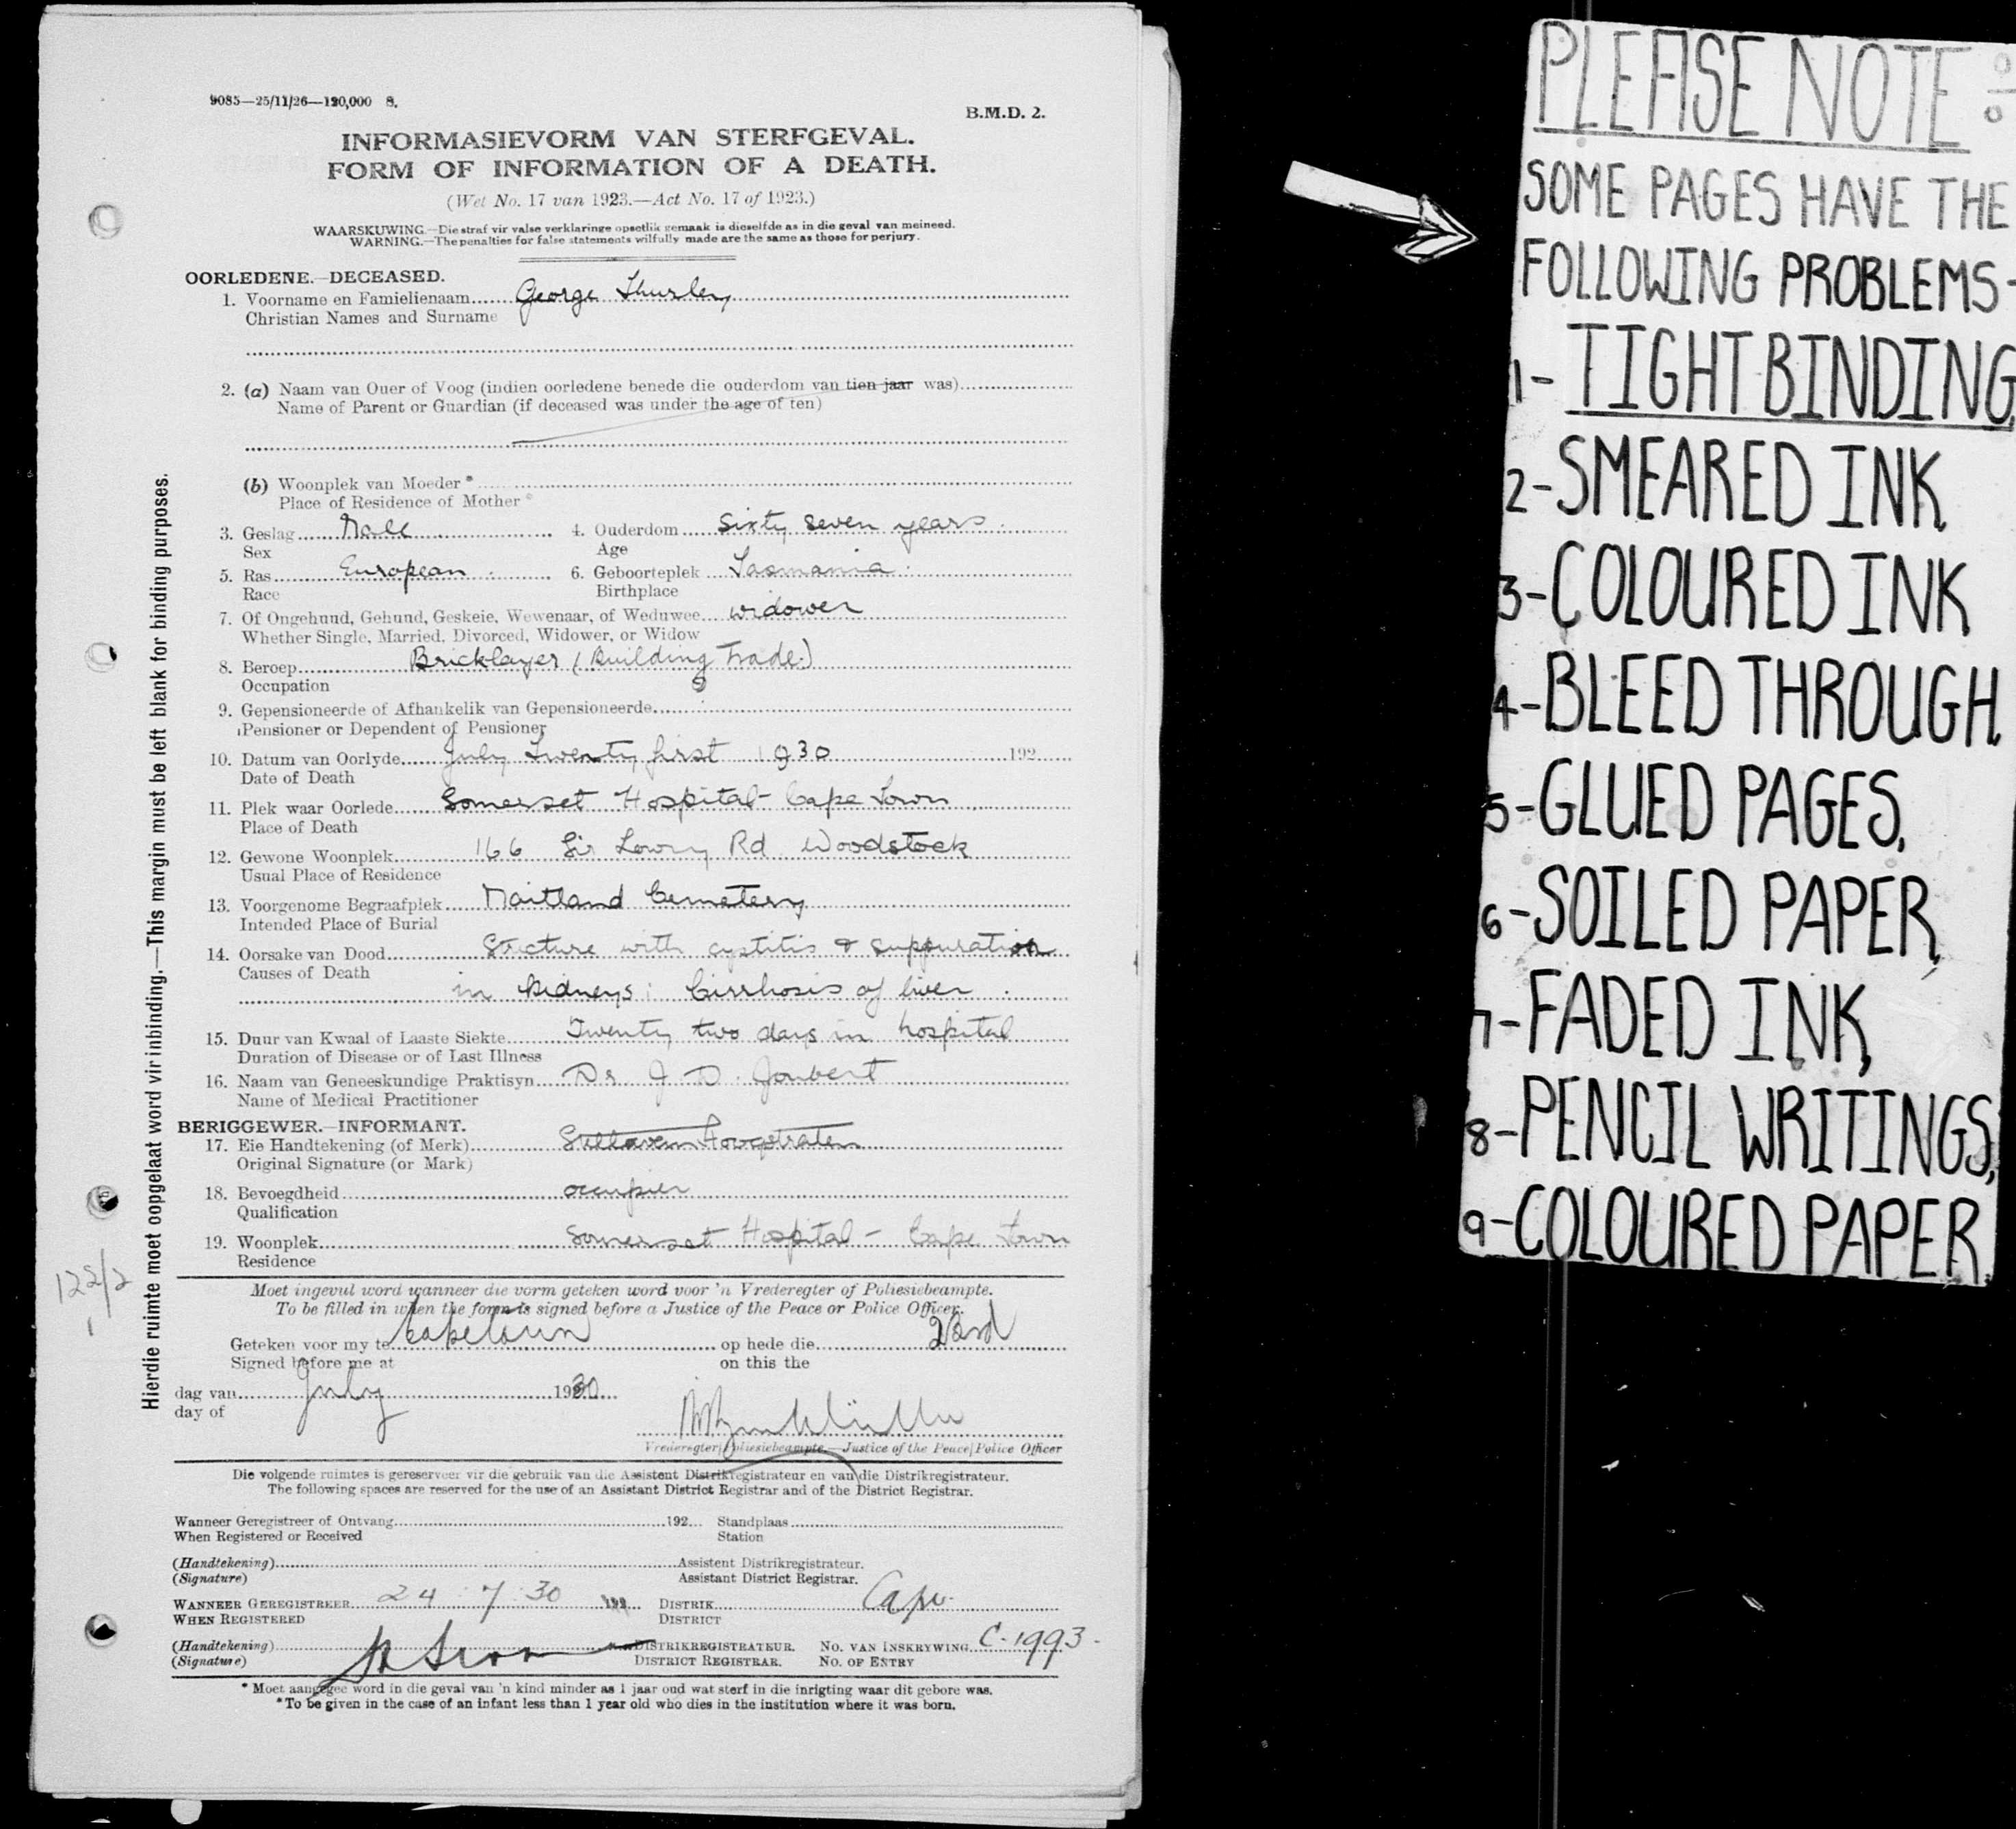 9085—25/11/26—120,000 S.
B.M.D. 2.
INFORMASIEVORM VAN STERFGEVAL.
FORM OF INFORMATION OF A DEATH.
(Wet No. 17 van 1923.—Act No. 17 of 1923.)
WAARSKUWING.—Die straf vir valse verklaringe opsetlik gemaak is dieselfde as in die geval van meineed.
WARNING.—The penalties for false statements wilfully made are the same as those for perjury.
OORLEDENE.—DECEASED.
1. Voorname en Famielienaam George Thurley
Christian Names and Surname
2. (a) Naam van Ouer of Voog (indien oorledene benede die ouderdom van tien jaar was)
Name of Parent or Guardian (if deceased was under the age of ten)
(b) Woonplek van Moeder *
Place of Residence of Mother *
3. Geslag Male 4. Ouderdom Sixty seven years.
Sex Age
5. Ras European. 6. Geboorteplek Tasmania.
Race Birthplace
7. Of Ongehuud, Gehuud, Geskeie, Wewenaar, of Weduwee widower
Whether Single, Married, Divorced, Widower, or Widow
8. Beroep Bricklayer (Building Trade.)
Occupation
9. Gepensioneerde of Afhankelik van Gepensioneerde
Pensioner or Dependent of Pensioner
10. Datum van Oorlyde July Twenty first 1930 192
Date of Death
11. Plek waar Oorlede Somerset Hospital - Cape Town
Place of Death
12. Gewone Woonplek 166 Sir Lowry Rd Woodstock
Usual Place of Residence
13. Voorgenome Begraafplek Maitland Cemetery
Intended Place of Burial
14. Oorsake van Dood Stricture with cystitis & suppuration
Causes of Death
in kidneys: Cirrhosis of liver.
15. Duur van Kwaal of Laaste Siekte Twenty two days in hospital
Duration of Disease or of Last Illness
16. Naam van Geneeskundige Praktisyn Dr. J. D. Joubert
Name of Medical Practitioner
BERIGGEWER.—INFORMANT.
17. Eie Handtekening (of Merk)
Original Signature (or Mark)
18. Bevoegdheid occupier
Qualification
19. Woonplek Somerset Hospital - Cape Town
Residence
Moet ingevul word wanneer die vorm geteken word voor 'n Vrederegter of Poliesiebeampte.
To be filled in when the form is signed before a Justice of the Peace or Police Officer.
Geteken voor my te Capetown op hede die 23rd
Signed before me at on this the
dag van July 1930
day of
Vrederegter/Poliesiebeampte.—Justice of the Peace/Police Officer
Die volgende ruimtes is gereserveer vir die gebruik van die Assistent Distrikregistrateur en van die Distrikregistrateur.
The following spaces are reserved for the use of an Assistant District Registrar and of the District Registrar.
Wanneer Geregistreer of Ontvang 192 Standplaas
When Registered or Received Station
(Handtekening) Assistent Distrikregistrateur.
(Signature) Assistant District Registrar.
WANNEER GEREGISTREER 24 7 30 192 DISTRIK Cape
WHEN REGISTERED DISTRICT
(Handtekening) DISTRIKREGISTRATEUR. NO. VAN INSKRYWING C. 1993.
(Signature) DISTRICT REGISTRAR. NO. OF ENTRY
* Moet aangegee word in die geval van 'n kind minder as 1 jaar oud wat sterf in die inrigting waar dit gebore was.
* To be given in the case of an infant less than 1 year old who dies in the institution where it was born.
Hierdie ruimte moet oopgelaat word vir inbinding.—This margin must be left blank for binding purposes.
PLEASE NOTE:
SOME PAGES HAVE THE
FOLLOWING PROBLEMS-
1- TIGHT BINDING
2-SMEARED INK,
3-COLOURED INK
4-BLEED THROUGH,
5-GLUED PAGES,
6-SOILED PAPER,
7-FADED INK,
8-PENCIL WRITINGS,
9-COLOURED PAPER.